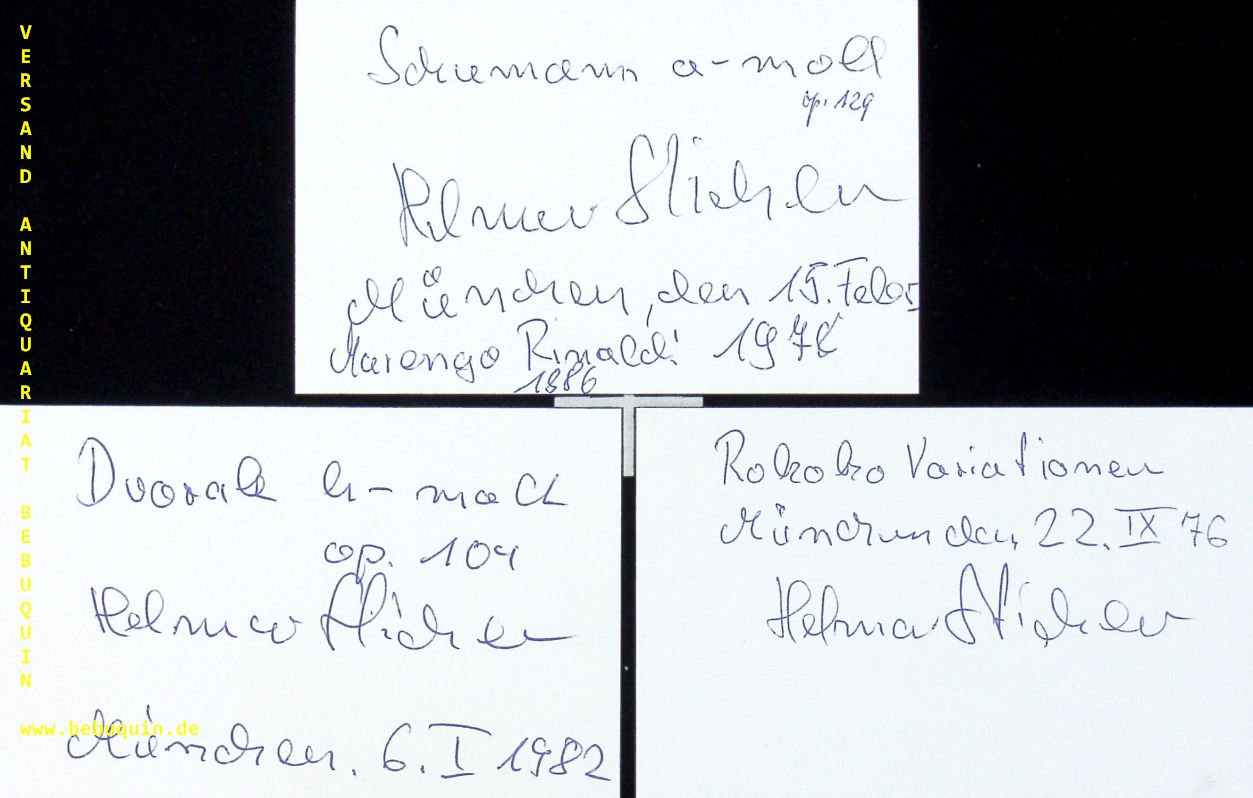 Schumann a-moll
op. 129
Helmar Stiehler
München, den 15. Febr
Marengo Rinaldi 1978
1886
Dvorak h-moll
op. 104
Helmar Stiehler
München. 6. I 1982
Rokoko Variationen
München den 22. IX 76
Helmar Stiehler
VERSAND ANTIQUARIAT BEBUQUIN
www.bebuquin.de